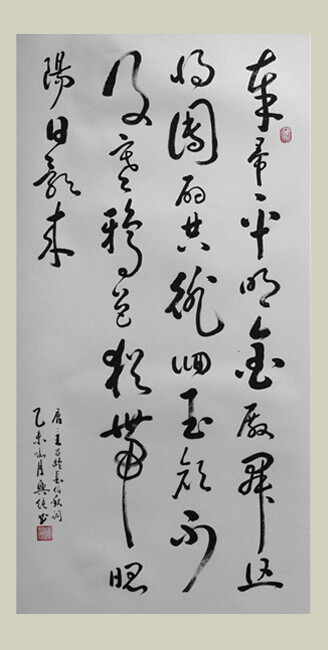 奉帚平明金殿開且
將團扇共徘徊玉顏不
及寒鴉色猶帶昭
陽日影來
唐王昌齡長信秋詞
乙未月書